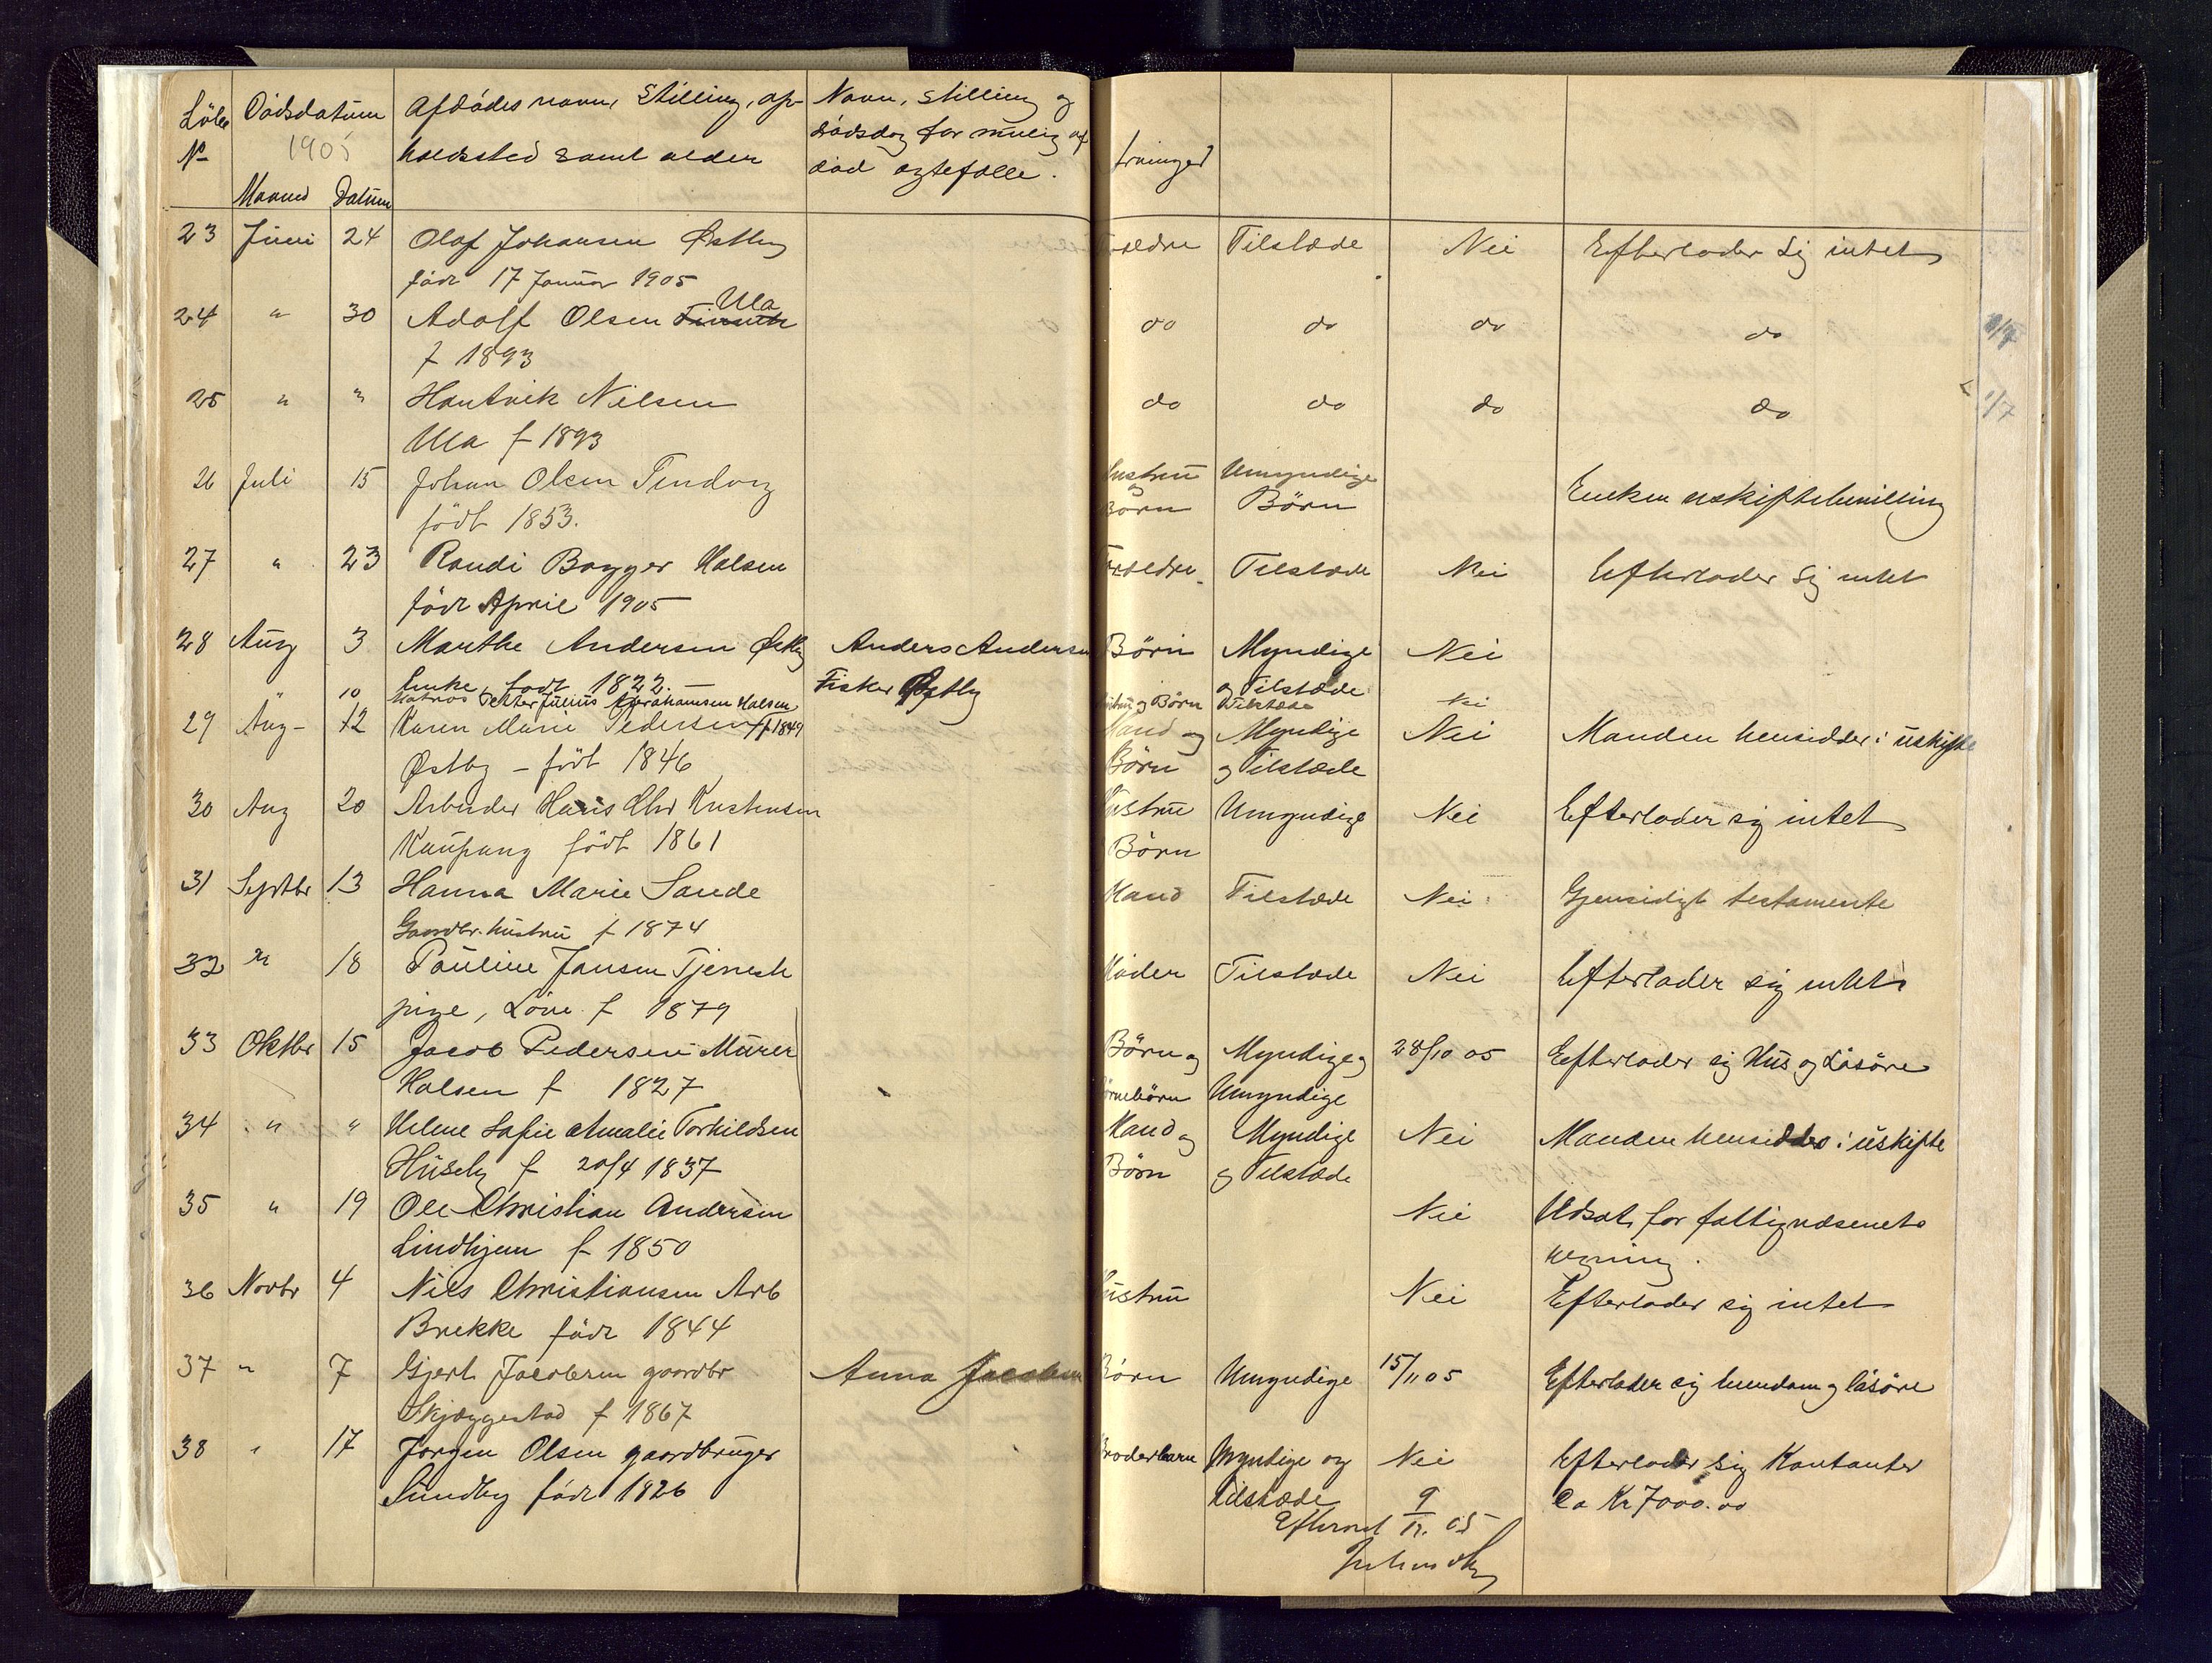 Löbe Dödsdatum Afdödes navn, Stilling, op- Navn, stilling og
No 1905 holdssted samt alder dödsdag for mulig af
död egtefælle. træninger
Maaned Datum
23 Juni 24 Olaf Johansen Østby Foreldre Tilstæde Nei Efterlader sig intet
född 17 Januar 1905
Ula
24 " 30 Adolf Olsen do do do do 1/7
f 1893
25 " " Hantvik Nilsen do do do do 1/7
Ula f 1893
26 Juli 15 Johan Olsen Hustru Umyndige Enken uskiftebevilling
og
född 1853. Börn Börn
27 " 23 Randi Bagger Halsen Foreldre Tilstæde Nei Efterlader sig intet
född April 1905
28 Aug 3 Marthe Andersen Østby Anders Andersen Börn Myndige Nei
Enke född 1822. — Fisker Østby og Tilstæde
" 10 Matros Petter Julius Abrahamsen Halsen f 1849 Hustru og Börn Tilstæde Nei
29 Aug- 12 Karen Marie Pedersen Mand og Myndige Nei Manden hensidder i uskifte
Østby – född 1846 Börn og Tilstæde
30 Aug 20 Arbeider Hans Chr Kristensen Hustru Umyndige Nei Efterlader sig intet
Kaupang född 1861 Börn
31 Septbr 13 Hanna Marie Sande Mand Tilstæde Nei Gjensidigt testamente
Gaardbr. hustru f 1874
32 " 18 Pauline Jansen Tjeneste Moder Tilstæde Nei Efterlader sig intet
pige, Löve f 1879
33 Oktbr 15 Jacob Pedersen Murer Börn og Myndige og 28/10 05 Efterlader sig Hus og Lösöre
Halsen f 1827 Börnebörn Umyndige
34 " " Helene Sofie Amalie Torkildsen Mand og Myndige Nei Manden hensidder i uskifte
Huseby f 20/4 1837 Börn og Tilstæde
35 " 19 Ole Christian Andersen Nei Udsat for fattigvæsenets
Lindhjem f 1850 regning.
36 Novbr 4 Niels Christiansen Arb Hustru Nei Efterlader sig intet
Brekke född 1844
37 " 7 Gjert Jacobsen gaardbr Anna Jacobsen Börn Umyndige 15/11 05 Efterlader sig eiendom og lösöre
Skjæggestad f 1867
38 " 17 Jørgen Olsen gaardbruger Broderbarn Myndige og Nei Efterlader sig Kontanter
Sundby född 1826 tilstæde Ca Kr 7000.00
Efterset 9/12. 05